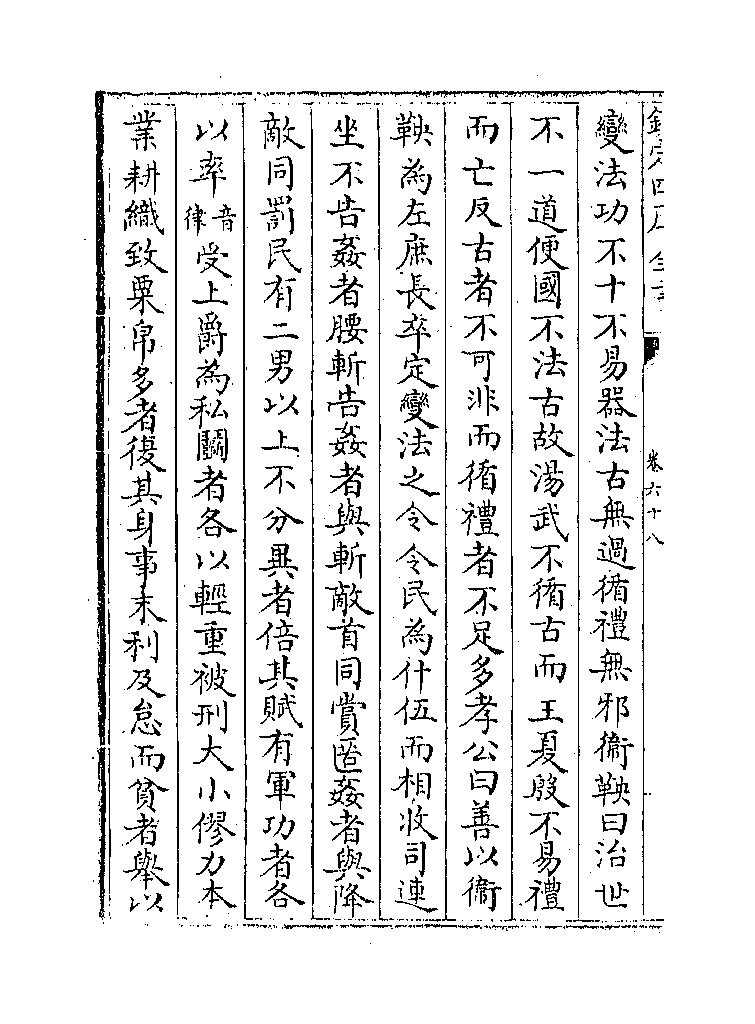 欽定四庫全書
卷六十八
變法功不十不易器法古無過循禮無邪衞鞅曰治世
不一道便國不法古故湯武不循古而王夏殷不易禮
而亡反古者不可非而循禮者不足多孝公曰善以衞
鞅為左庶長卒定變法之令令民為什伍而相收司連
坐不告姦者腰斬告姦者與斬敵首同賞匿姦者與降
敵同罰民有二男以上不分異者倍其賦有軍功者各
以率音律受上爵為私鬭者各以輕重被刑大小僇力本
業耕織致粟帛多者復其身事末利及怠而貧者舉以